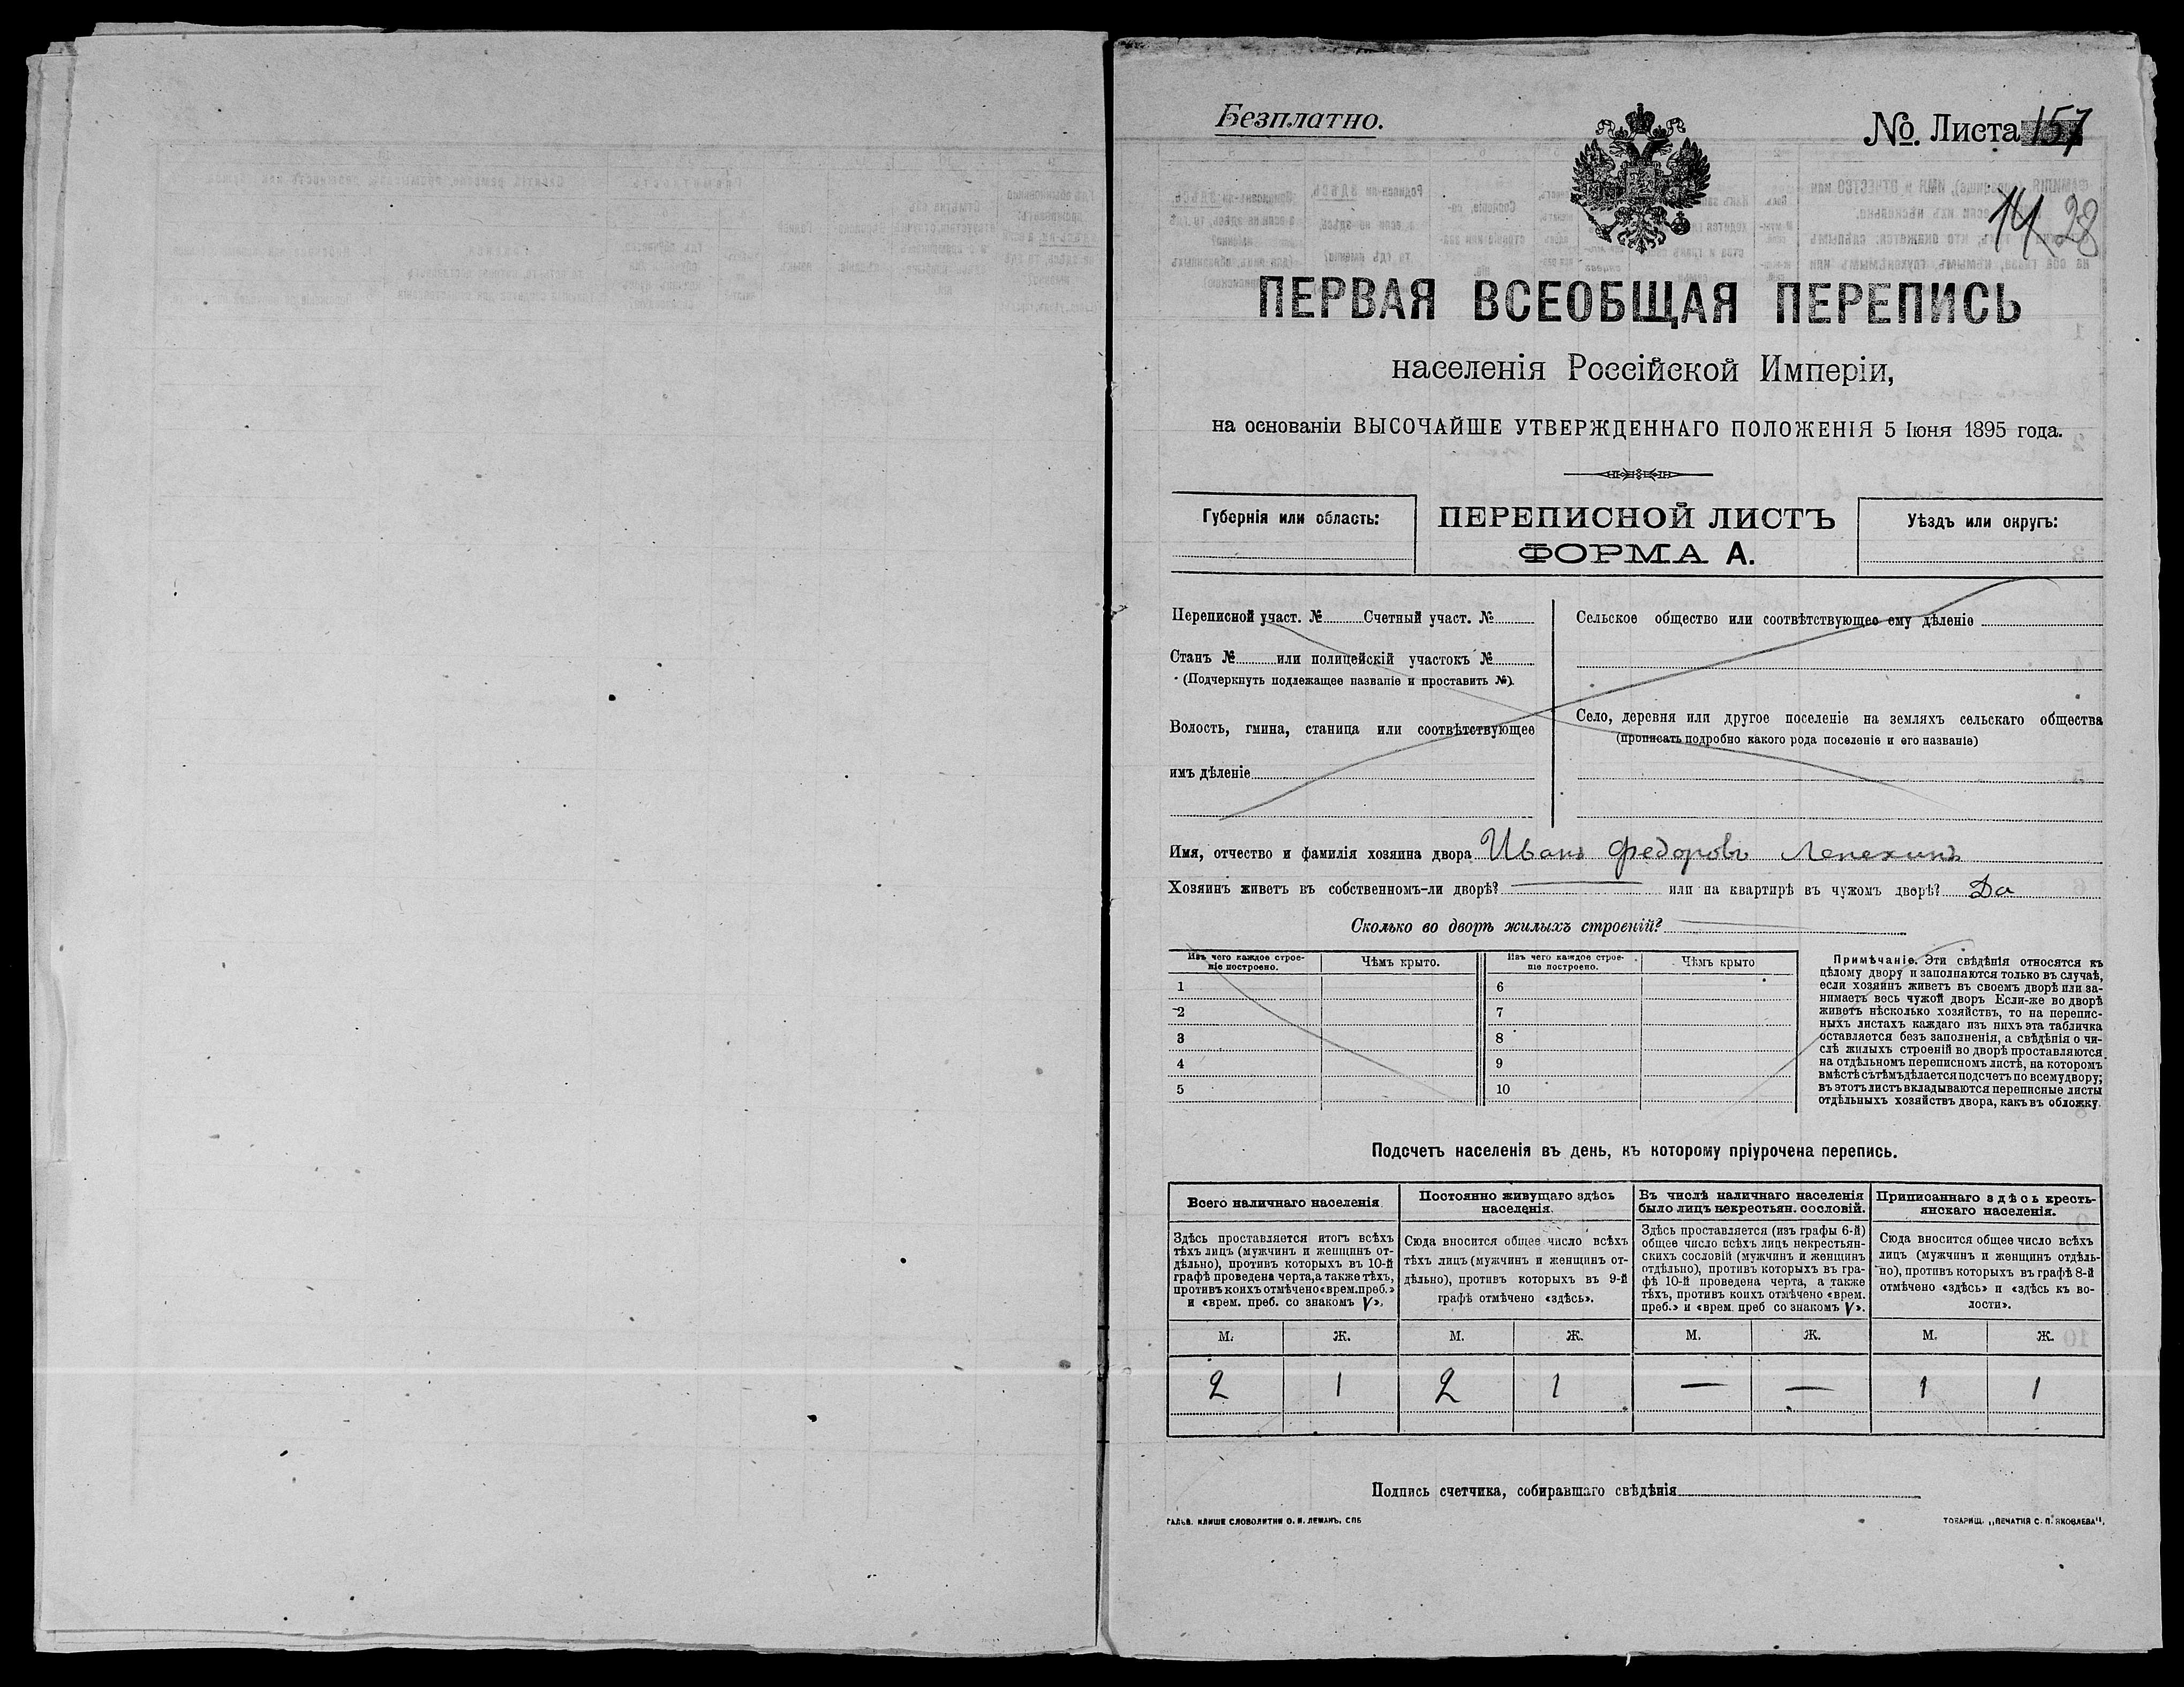 Безплатно.
№. Листа 157
14 28
ПЕРВАЯ ВСЕОБЩАЯ ПЕРЕПИСЬ
населенія Россійской Имперіи,
на основаніи ВЫСОЧАЙШЕ УТВЕРЖДЕННАГО ПОЛОЖЕНІЯ 5 Іюня 1895 года.
Губернія или область:
ПЕРЕПИСНОЙ ЛИСТЪ
ФОРМА А.
Уѣздъ или округъ:
Переписной участ. № Счетный участ. №
Станъ № или полицейскій участокъ №
(Подчеркнуть подлежащее названіе и проставить №).
Волость, гмина, станица или соотвѣтствующее
имъ дѣленіе
Сельское общество или соотвѣтствующее ему дѣленіе
Село, деревня или другое поселеніе на земляхъ сельскаго общества
(прописать подробно какого рода поселеніе и его названіе)
Имя, отчество и фамилія хозяина двора Иванъ Федоровъ Лепехинъ
Хозяинъ живетъ въ собственномъ-ли дворѣ? — или на квартирѣ въ чужомъ дворѣ? Да
Сколько во дворѣ жилыхъ строеній? —
Изъ чего каждое строе-
ніе построено.
Чѣмъ крыто.
Изъ чего каждое строе-
ніе построено.
Чѣмъ крыто
1 6
2 7
3 8
4 9
5 10
Примѣчаніе. Эти свѣдѣнія относятся къ
цѣлому двору и заполняются только въ случаѣ,
если хозяинъ живетъ въ своемъ дворѣ или за-
нимаетъ весь чужой дворъ Если-же во дворѣ
живетъ нѣсколько хозяйствъ, то на перепис-
ныхъ листахъ каждаго изъ нихъ эта табличка
оставляется безъ заполненія, а свѣдѣнія о чи-
слѣ жилыхъ строеній во дворѣ проставляются
на отдѣльномъ переписномъ листѣ, на которомъ
вмѣстѣ съ тѣмъ дѣлается подсчетъ по всему двору;
въ этотъ листъ вкладываются переписные листы
отдѣльныхъ хозяйствъ двора, какъ въ обложку.
Подсчетъ населенія въ день, къ которому пріурочена перепись.
Всего наличнаго населенія
Здѣсь проставляется итогъ всѣхъ
тѣхъ лицъ (мужчинъ и женщинъ от-
дѣльно), противъ которыхъ въ 10-й
графѣ проведена черта, а также тѣхъ,
противъ коихъ отмѣчено «врем. преб.»
и «врем. преб. со знакомъ V».
Постоянно живущаго здѣсь
населенія.
Сюда вносится общее число всѣхъ
тѣхъ лицъ (мужчинъ и женщинъ от-
дѣльно), противъ которыхъ въ 9-й
графѣ отмѣчено «здѣсь».
Въ числѣ наличнаго населенія
было лицъ некрестьян. сословій.
Здѣсь проставляется (изъ графы 6-й)
общее число всѣхъ лицъ некрестьян-
скихъ сословій (мужчинъ и женщинъ
отдѣльно), противъ которыхъ въ гра-
фѣ 10-й проведена черта, а также
тѣхъ, противъ коихъ отмѣчено «врем.
преб.» и «врем. преб со знакомъ V».
Приписаннаго здѣсь кресть-
янскаго населенія.
Сюда вносится общее число всѣхъ
лицъ (мужчинъ и женщинъ отдѣль-
но), противъ которыхъ въ графѣ 8-й
отмѣчено «здѣсь» и «здѣсь къ во-
лости».
М. Ж. М. Ж. М. Ж. М. Ж.
2 1 2 1 — — 1 1
Подпись счетчика, собиравшаго свѣдѣнія
ГАЛЬВ. КЛИШЕ СЛОВОЛИТНИ О. И. ЛЕМАНЪ, СПБ
ТОВАРИЩ. „ПЕЧАТНЯ С. П. ЯКОВЛЕВА“,